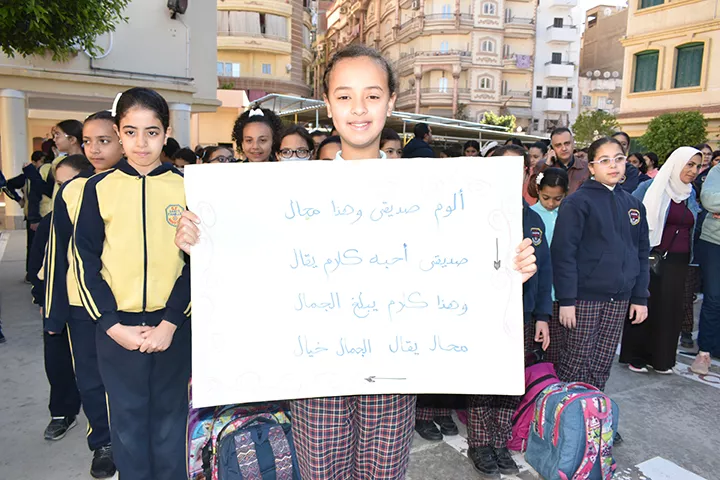 ألوم صديقى وهذا مجال
صديقى أحبه كلام يقال
وهذا كلام يبلغ الجمال
محال يقال الجمال خيال